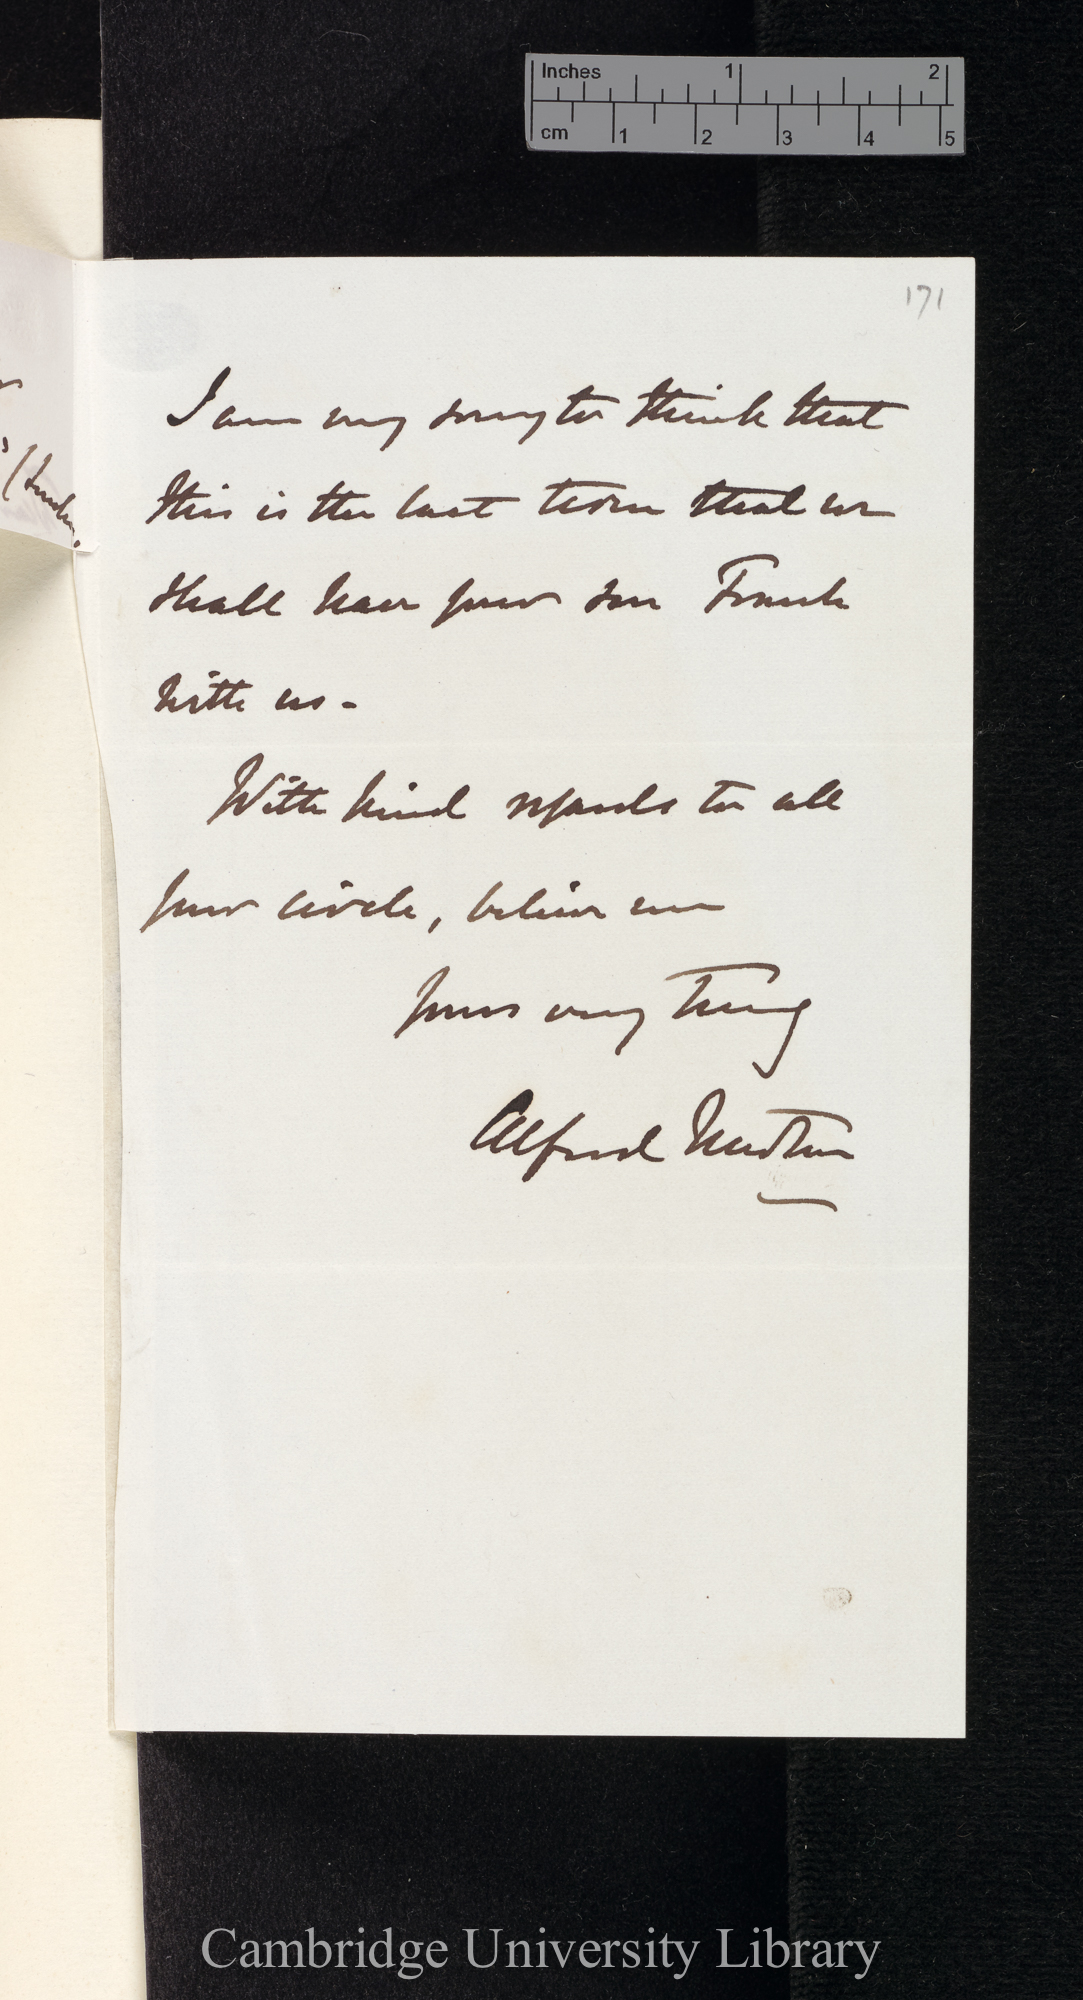 Inches 1 2
cm 1 2 3 4 5
171
I am very sorry to think that
this is the last term that we
shall have your son Frank
with us -
With kind regards to all
your circle, believe me
Yours very truly
Alfred Newton
Cambridge University Library